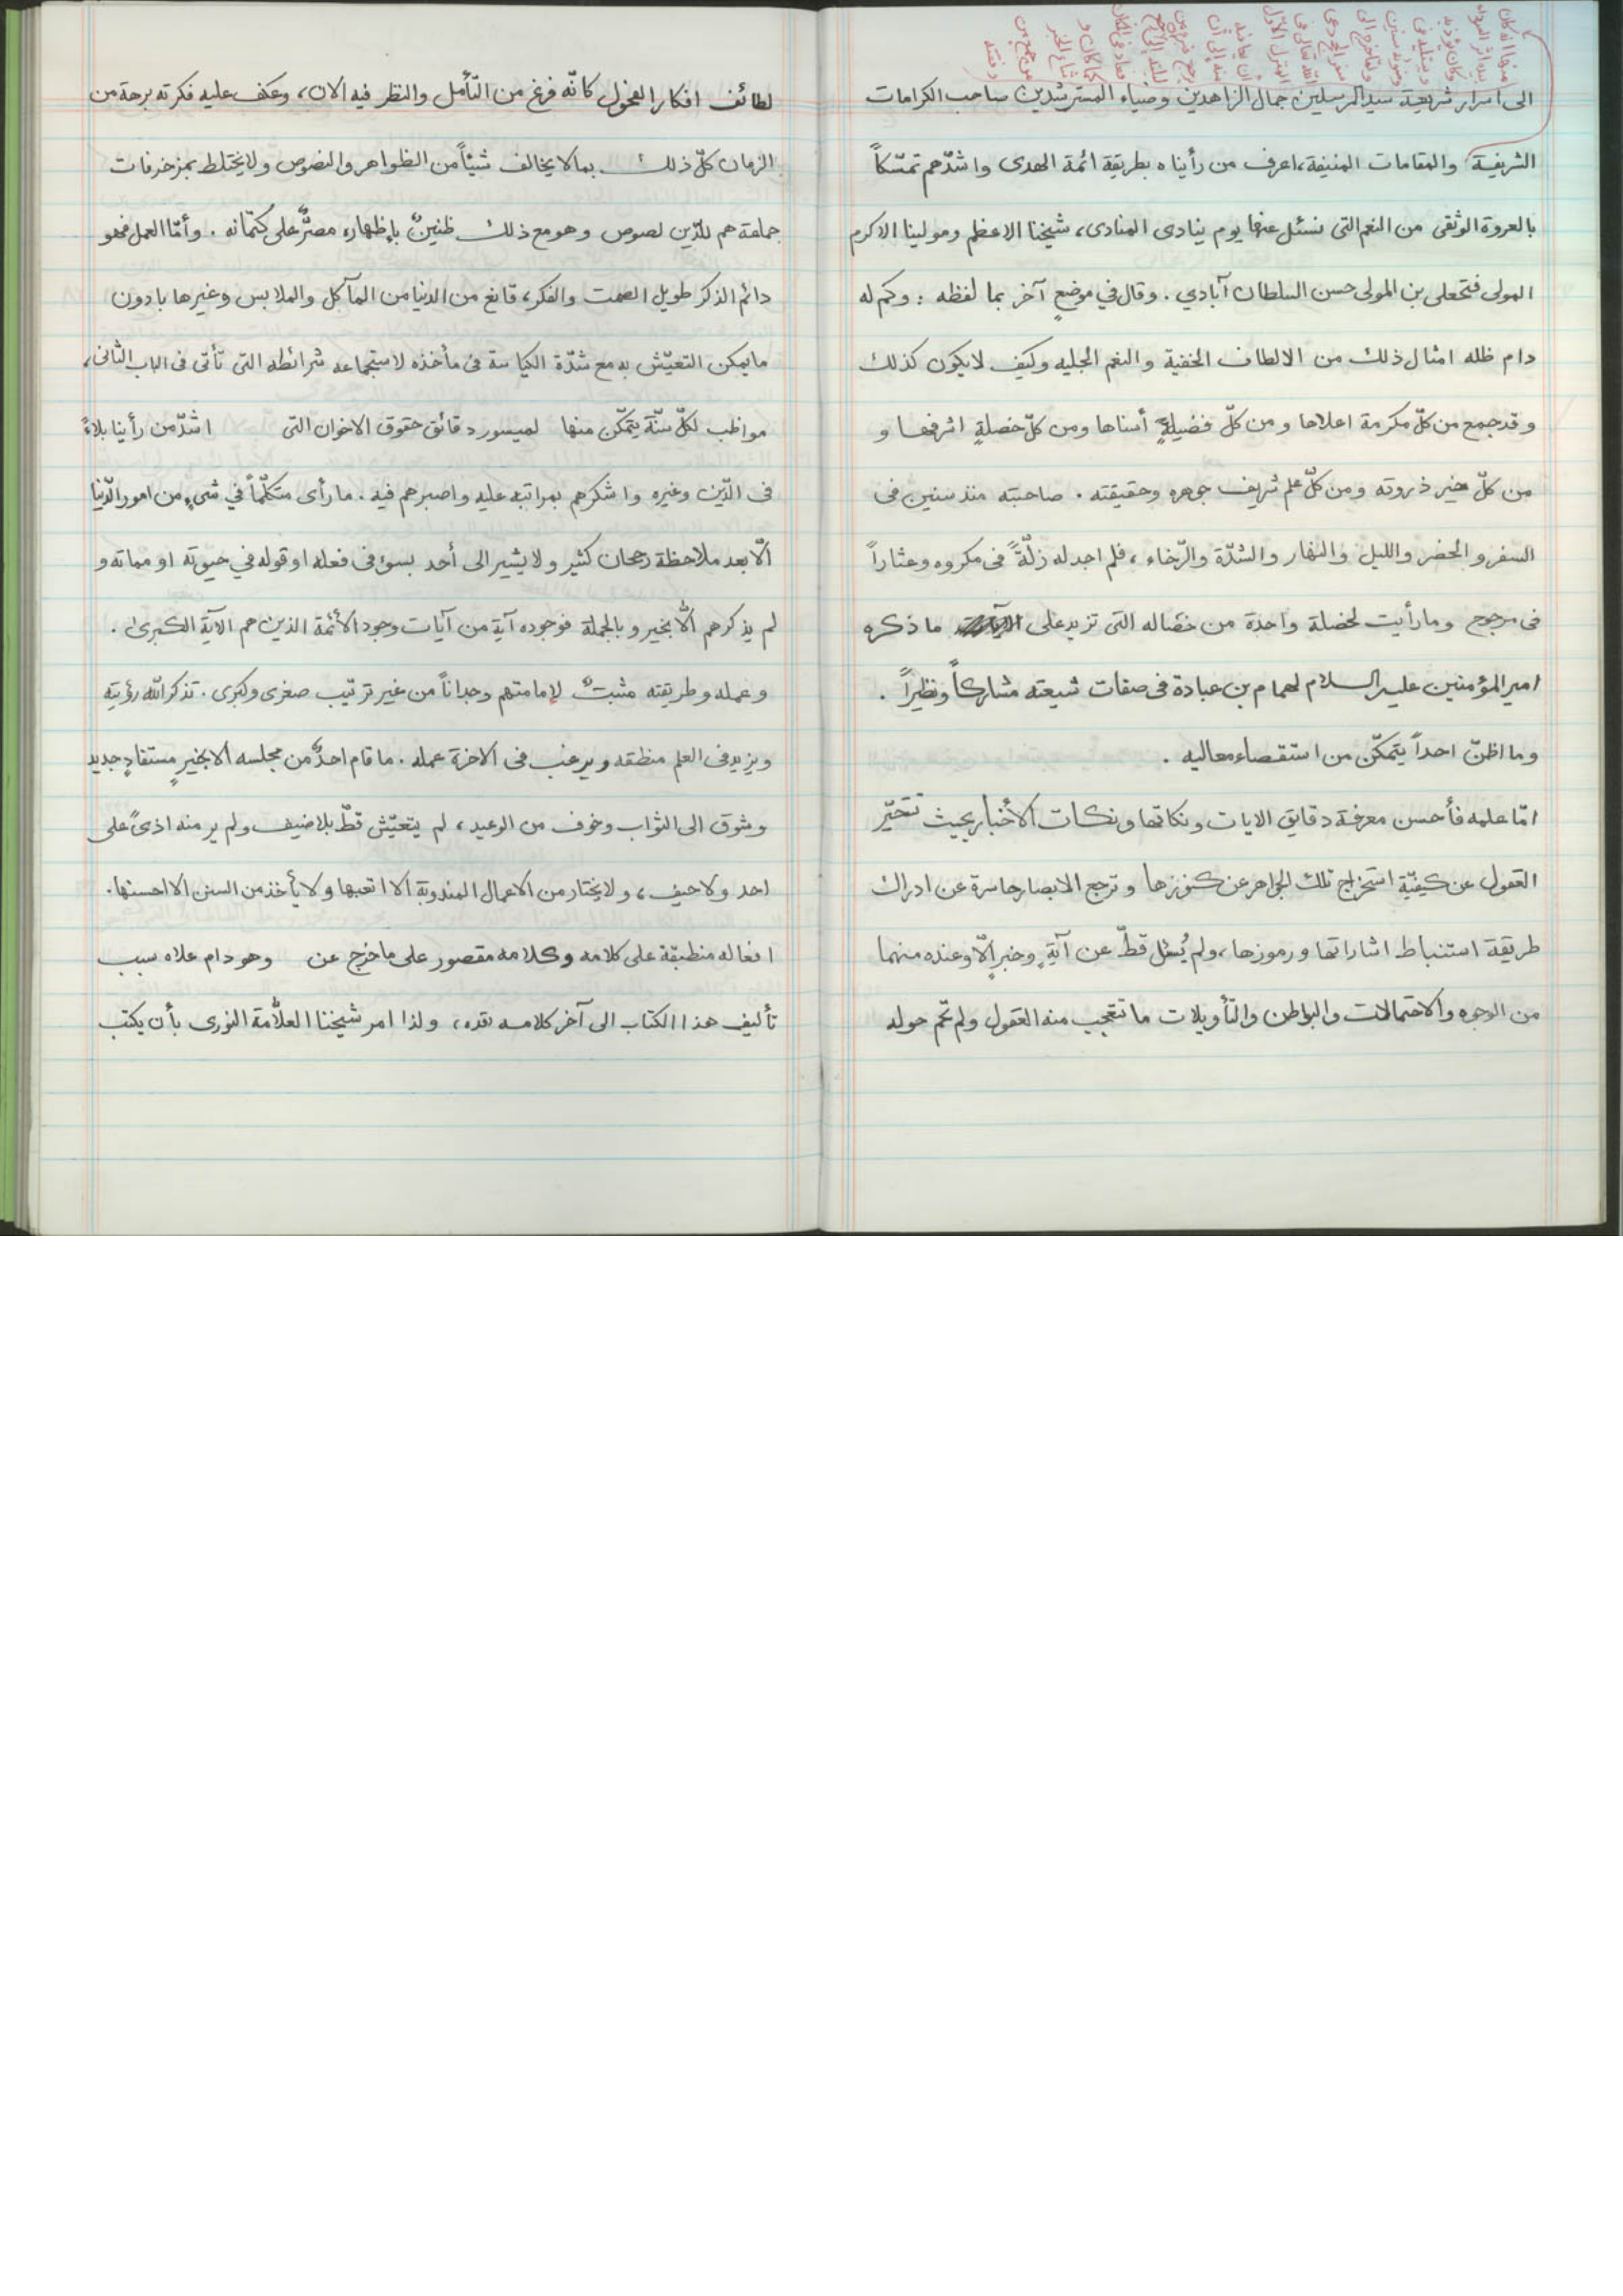 الى اسرار شريعة سيد المرسلين جمال الزاهدين وضياء المسترشدين صاحب الكرامات
الشريفة والمقامات المنيفة، اعرف من رأيناه بطريقة ائمة الهدى واشدّهم تمسّكاً
بالعروة الوثقى من النعم التى نسئل عنها يوم ينادى المنادى، شيخنا الاعظم ومولينا الاكرم
المولى فتحعلى بن المولى حسن السلطان آبادي . وقال في موضعٍ آخر بما لفظه : وكم له
دام ظله امثال ذلك من الالطاف الخفية والنعم الجليه وكيف لايكون كذلك
وقد جمع من كلّ مكرمة اعلاها و من كلّ فضيلةٍ أسناها ومن كلّ خصلةٍ اشرفها و
من كلّ خير ذروته ومن كلّ علم شريف جوهره وحقيقته . صاحبته منذ سنين فى
السفر و الحضر والليل والنهار والشدّة والرّخاء ، فلم اجد له زلّةً فى مكروه وعثاراً
فى مرجح وما رأيت لخصلة واحدة من خصاله التى تزيد على ما ذكره
امير المؤمنين عليه السلام لهمام بن عبادة فى صفات شيعته مشاركاً ونظيراً .
وما اظنّ احداً يتمكّن من استقصاء معاليه .
امّا علمه فأحسن معرفة دقايق الايات ونكاتها ونكات الأخبار بحيث تتحيّر
العقول عن كيفيّة استخراج تلك الجواهر عن كنوزها و ترجع الابصار حاسرة عن ادراك
طريقة استنباط اشاراتها ورموزها، ولم يُسئل قطّ عن آيةٍ وخبرٍ الّا وعنده منهما
من الوجوه والاحتمالات والبواطن والتّأويلات ما تتعجب منه العقول ولم تحم حوله
لطائف افكار الفحول كانّه فرغ من التّأمل والنظر فيه الان، وعكف عليه فكرته برهة من
الزمان كلّ ذلك بما لا يخالف شيئاً من الظواهر والنصوص ولا يختلط بمزخرفات
جماعة هم للدّين لصوص وهو مع ذلك ظنينٌ بإظهاره مصرٌّ على كتمانه . وأمّا العمل فهو
دائم الذكر طويل الصمت والفكر، قانع من الدنيا من المآكل والملابس وغيرها بادون
ما يمكن التعيّش به مع شدّة الكياسة فى مأخذه لاستجماعه شرائطه التى تأتى فى الباب الثانى،
مواظب لكلّ سنّة يتمكّن منها لميسور دقائق حقوق الاخوان التى اشدّ من رأينا بلاءً
فى الدّين وغيره واشكرهم بمراتبه عليه واصبرهم فيه . ما رأى متكلّماً في شىءٍ من امور الدّنيا
الّا بعد ملاحظة رجحان كثير ولا يشير الى أحد بسوء فى فعله او قوله في حيوته او مماته و
لم يذكرهم الّا بخير و بالجملة فوجوده آية من آيات وجود الأئمة الذين هم الآية الكبرى .
وعمله وطريقته مثبتٌ لإمامتهم وجداناً من غير ترتيب صغرى وكبرى . تذكر الله رؤيته
ويزيد فى العلم منطقه ويرغب فى الاخرة عمله . ما قام احدٌ من مجلسه الا بخيرٍ مستفادٍ جديد
وشوق الى الثواب وخوف من الوعيد ، لم يتعيّش قطّ بلا ضيف ولم ير منه اذىً على
احد ولا حيف ، ولا يختار من الاعمال المندوبة الا اتعبها ولا يأخذ من السنن الا احسنها .
افعاله منطبقة على كلامه وكلامه مقصور على ما خرج عن وهو دام علاه سبب
تأليف هذا الكتاب الى آخر كلامه نقده ، ولذا امر شيخنا العلّامة النورى بأن يكتب